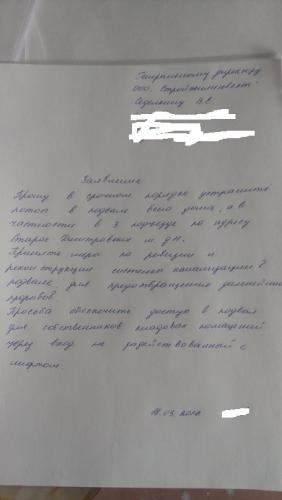 Генеральному директору
ООО "Стройжилинвест"
Седелкину В.Е
Заявление
Прошу в срочном порядке устранить
потоп в подвале всего дома, а в
частности в 3 подъезде по адресу
Старое Дмитровское ш. д.11.
Принять меры по ревизии и
реконструкции системы канализации в
подвале, для предотвращения дальнейших
прорывов.
Просьба обеспечить доступ в подвал
для собственников кладовых помещений
через вход не задействованный с
лифтом.
18.03.2020